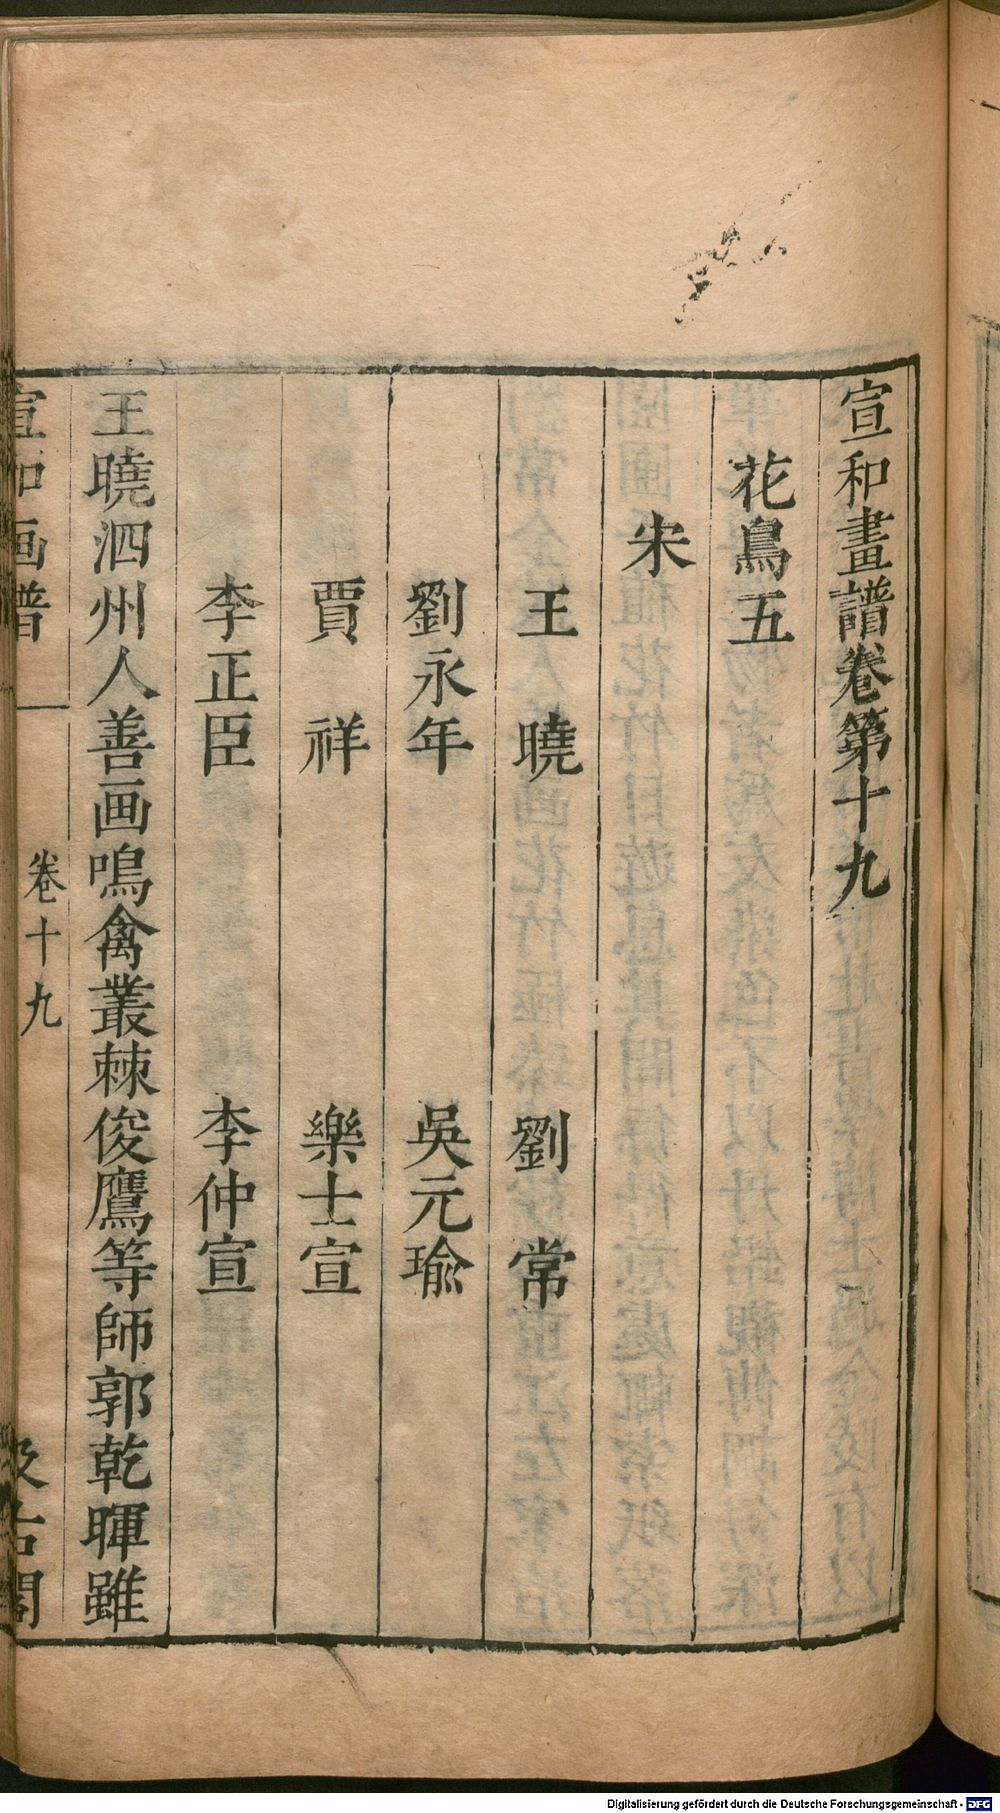 宣和畫譜卷第十九
花鳥五
宋
王曉 劉常
劉永年 吳元瑜
賈祥 樂士宣
李正臣 李仲宣
王曉泗州人善画鳴禽叢棘俊鷹等師郭乾暉雖
宣和画譜 卷十九 汲古閣
Digitalisierung gefördert durch die Deutsche Forschungsgemeinschaft - DFG